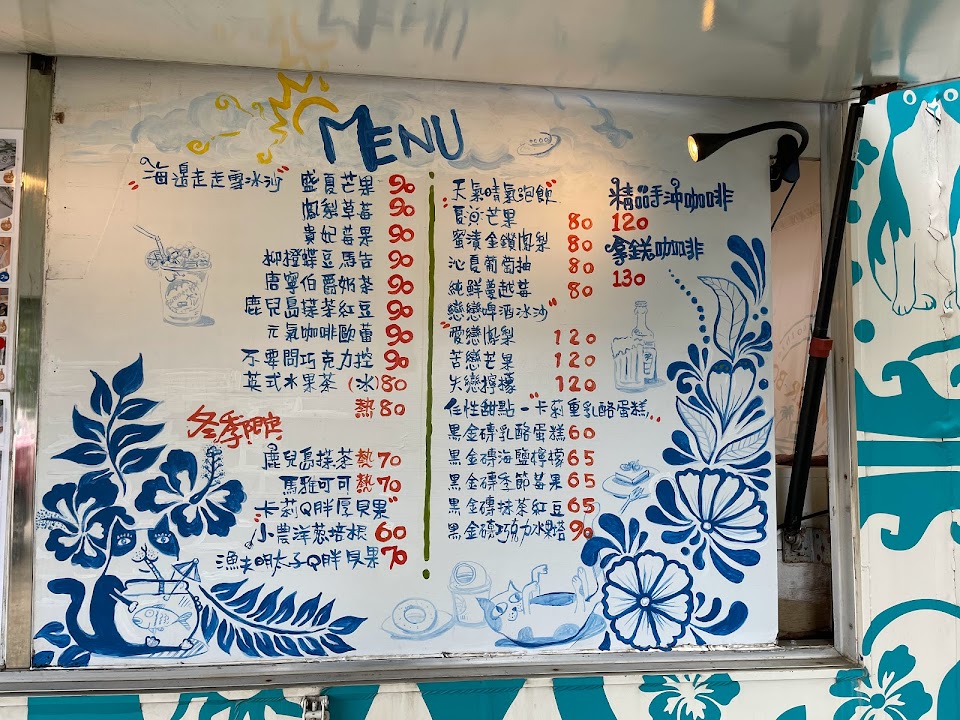 MENU
海邊走走雪冰沙
盛夏芒果 90
鳳梨草莓 90
貴妃莓果 90
柳橙蝶豆馬告 90
唐寧伯爵奶茶 90
鹿兒島抹茶紅豆 90
元氣咖啡歐蕾 90
不要問巧克力控 90
英式水果茶 (冰)80
熱80
冬季限定
鹿兒島抹茶 熱70
馬雅可可 熱70
"卡莉Q胖厚貝果"
小農洋蔥培根 60
漁夫明太子Q胖貝果 70
"天氣晴氣泡飲"
夏沁芒果 80
蜜漬金鑽鳳梨 80
沁夏葡萄柚 80
純鮮蔓越莓 80
戀戀啤酒冰沙"
"愛戀鳳梨 120
苦戀芒果 120
失戀檸檬 120
任性甜點-卡莉重乳酪蛋糕"
黑金磚乳酪蛋糕 60
黑金磚海鹽檸檬 65
黑金磚季節莓果 65
黑金磚抹茶紅豆 65
黑金磚巧克力冰淇淋 90
精品手沖咖啡
120
拿鐵咖啡
130